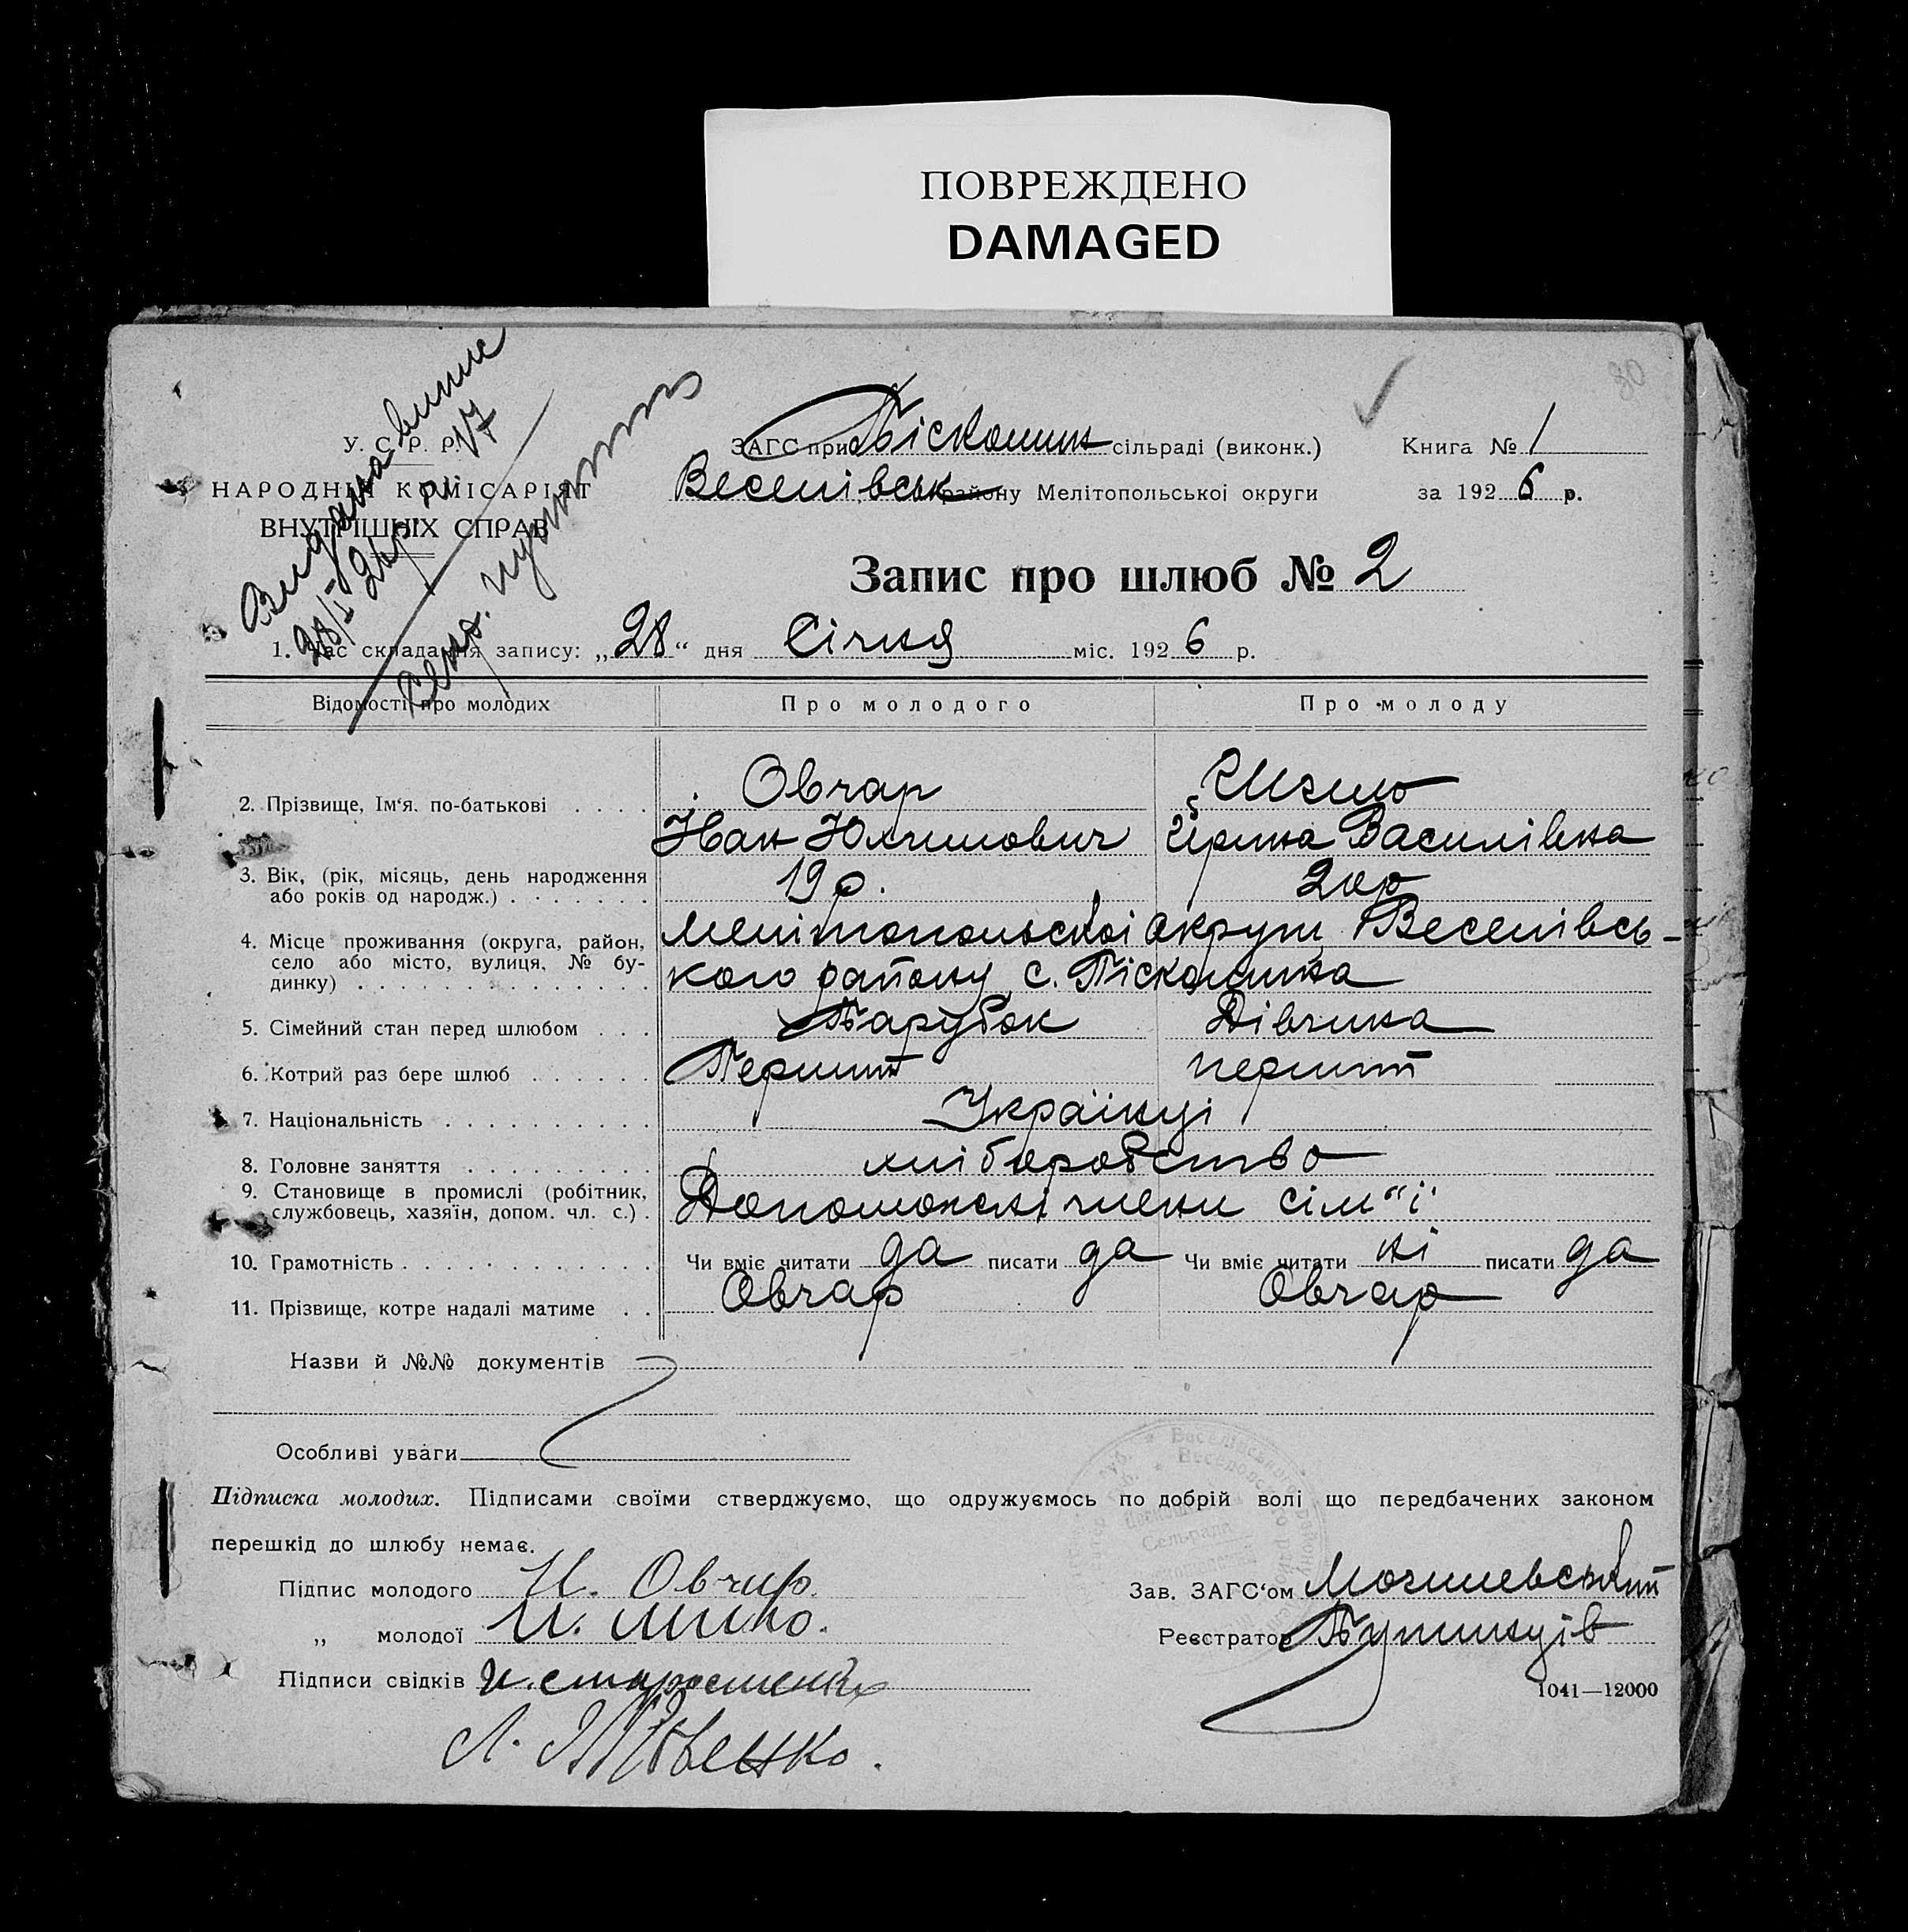 ПОВРЕЖДЕНО
DAMAGED
30
Видана випис
28/I-26р за №7
У. С. Р. Р.
НАРОДНІЙ КОМІСАРІЯТ
ВНУТРІШНІХ СПРАВ
ЗАГС при Піскошин сільраді (виконк.) Книга № 1
Веселівськ району Мелітопольської округи за 1926 р.
Запис про шлюб № 2
1. Час складання запису: „28“ дня Січня міс. 1926 р.
Відомості про молодих Про молодого Про молоду
2. Прізвище, Ім‘я, по-батькові Овчар
Іван Юхимович Василівна
3. Вік, (рік, місяць, день народження 19 р. 20р
або років од народж.)
4. Місце проживання (округа, район, Мелітопольської округи Веселівсь-
село або місто, вулиця, № бу- кого району с. Піскошина
динку)
5. Сімейний стан перед шлюбом Парубок Дівчина
6. Котрий раз бере шлюб Перший перший
7. Національність Українці
8. Головне заняття хліборобство
9. Становище в промислі (робітник, Допоможні члени сім"ї
службовець, хазяїн, допом. чл. с.)
10. Грамотність Чи вміє читати да писати да Чи вміє читати ні писати да
11. Прізвище, котре надалі матиме Овчар Овчар
Назви й №№ документів
Особливі уваги
Підписка молодих. Підписами своїми стверджуємо, що одружуємось по добрій волі що передбачених законом
перешкід до шлюбу немає.
Підпис молодого И. Овчар. Зав. ЗАГС‘ом Могилевський
„ молодої И. Реєстратор
Підписи свідків
1041—12000